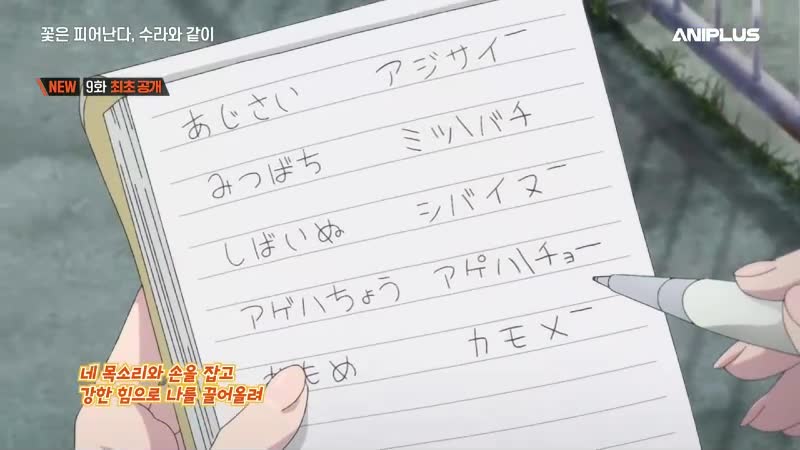 꽃은 피어난다, 수라와 같이
ANIPLUS
NEW 9화 최초 공개
あじさい アジサイ￣
みつばち ミツ\バチ
しばいぬ シバイヌ￣
アゲハちょう アケ゚ハ\チョー
かもめ カモメ￣
네 목소리와 손을 잡고
강한 힘으로 나를 끌어올려